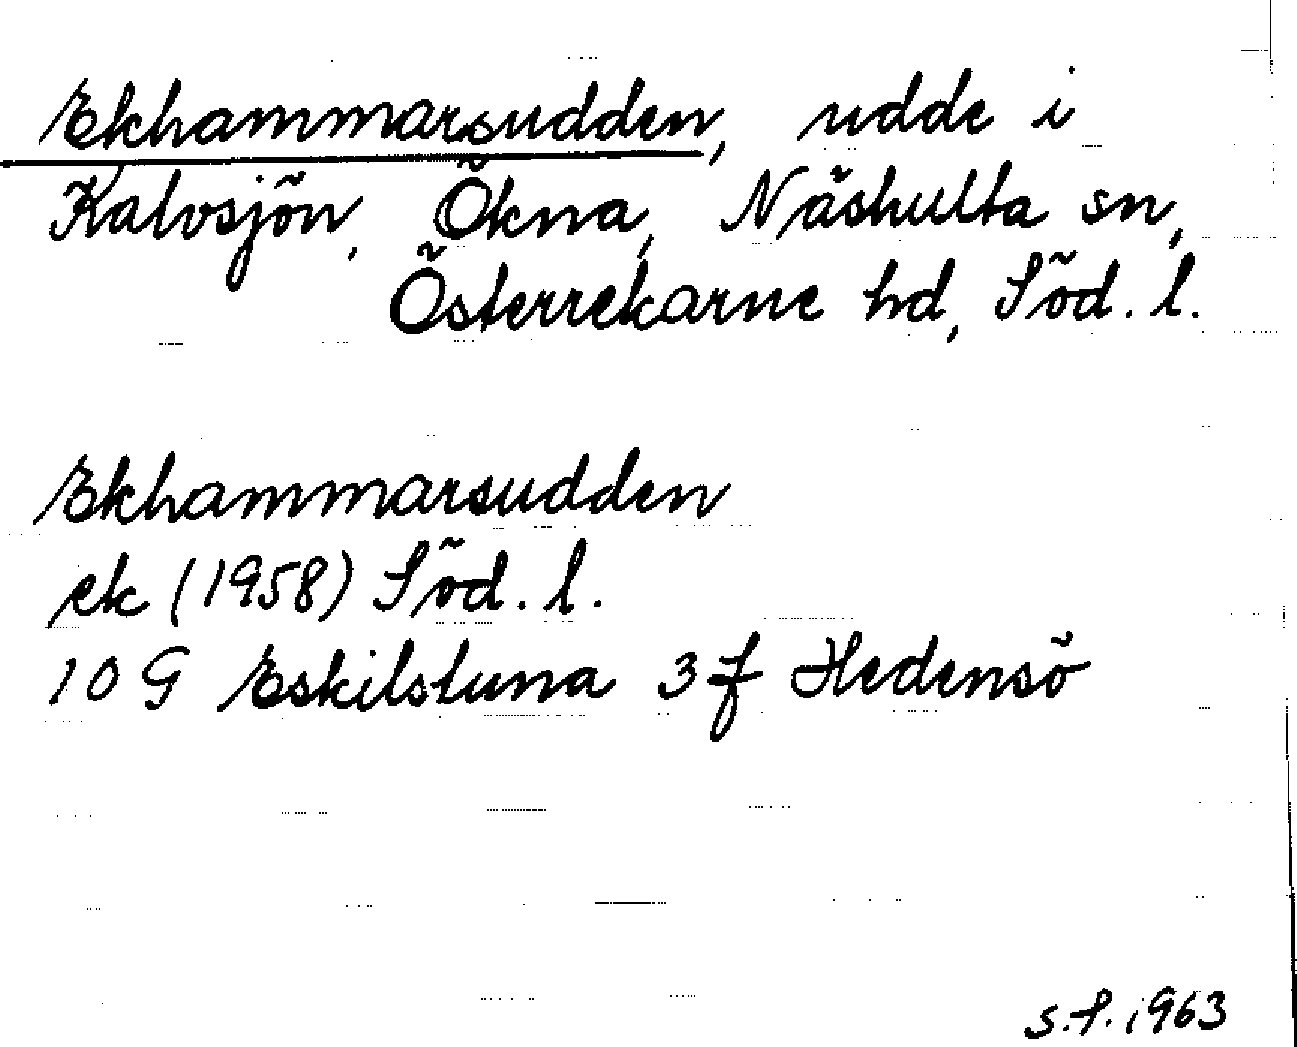 Ekhammarsudden, udde i
Kalvsjön, Ökna, Näshulta sn,
Österrekarne hd, Söd. l.
Ekhammarsudden
ek (1958) Söd. l.
10 G Eskilstuna 3 f Hedensö
S.P. 1963